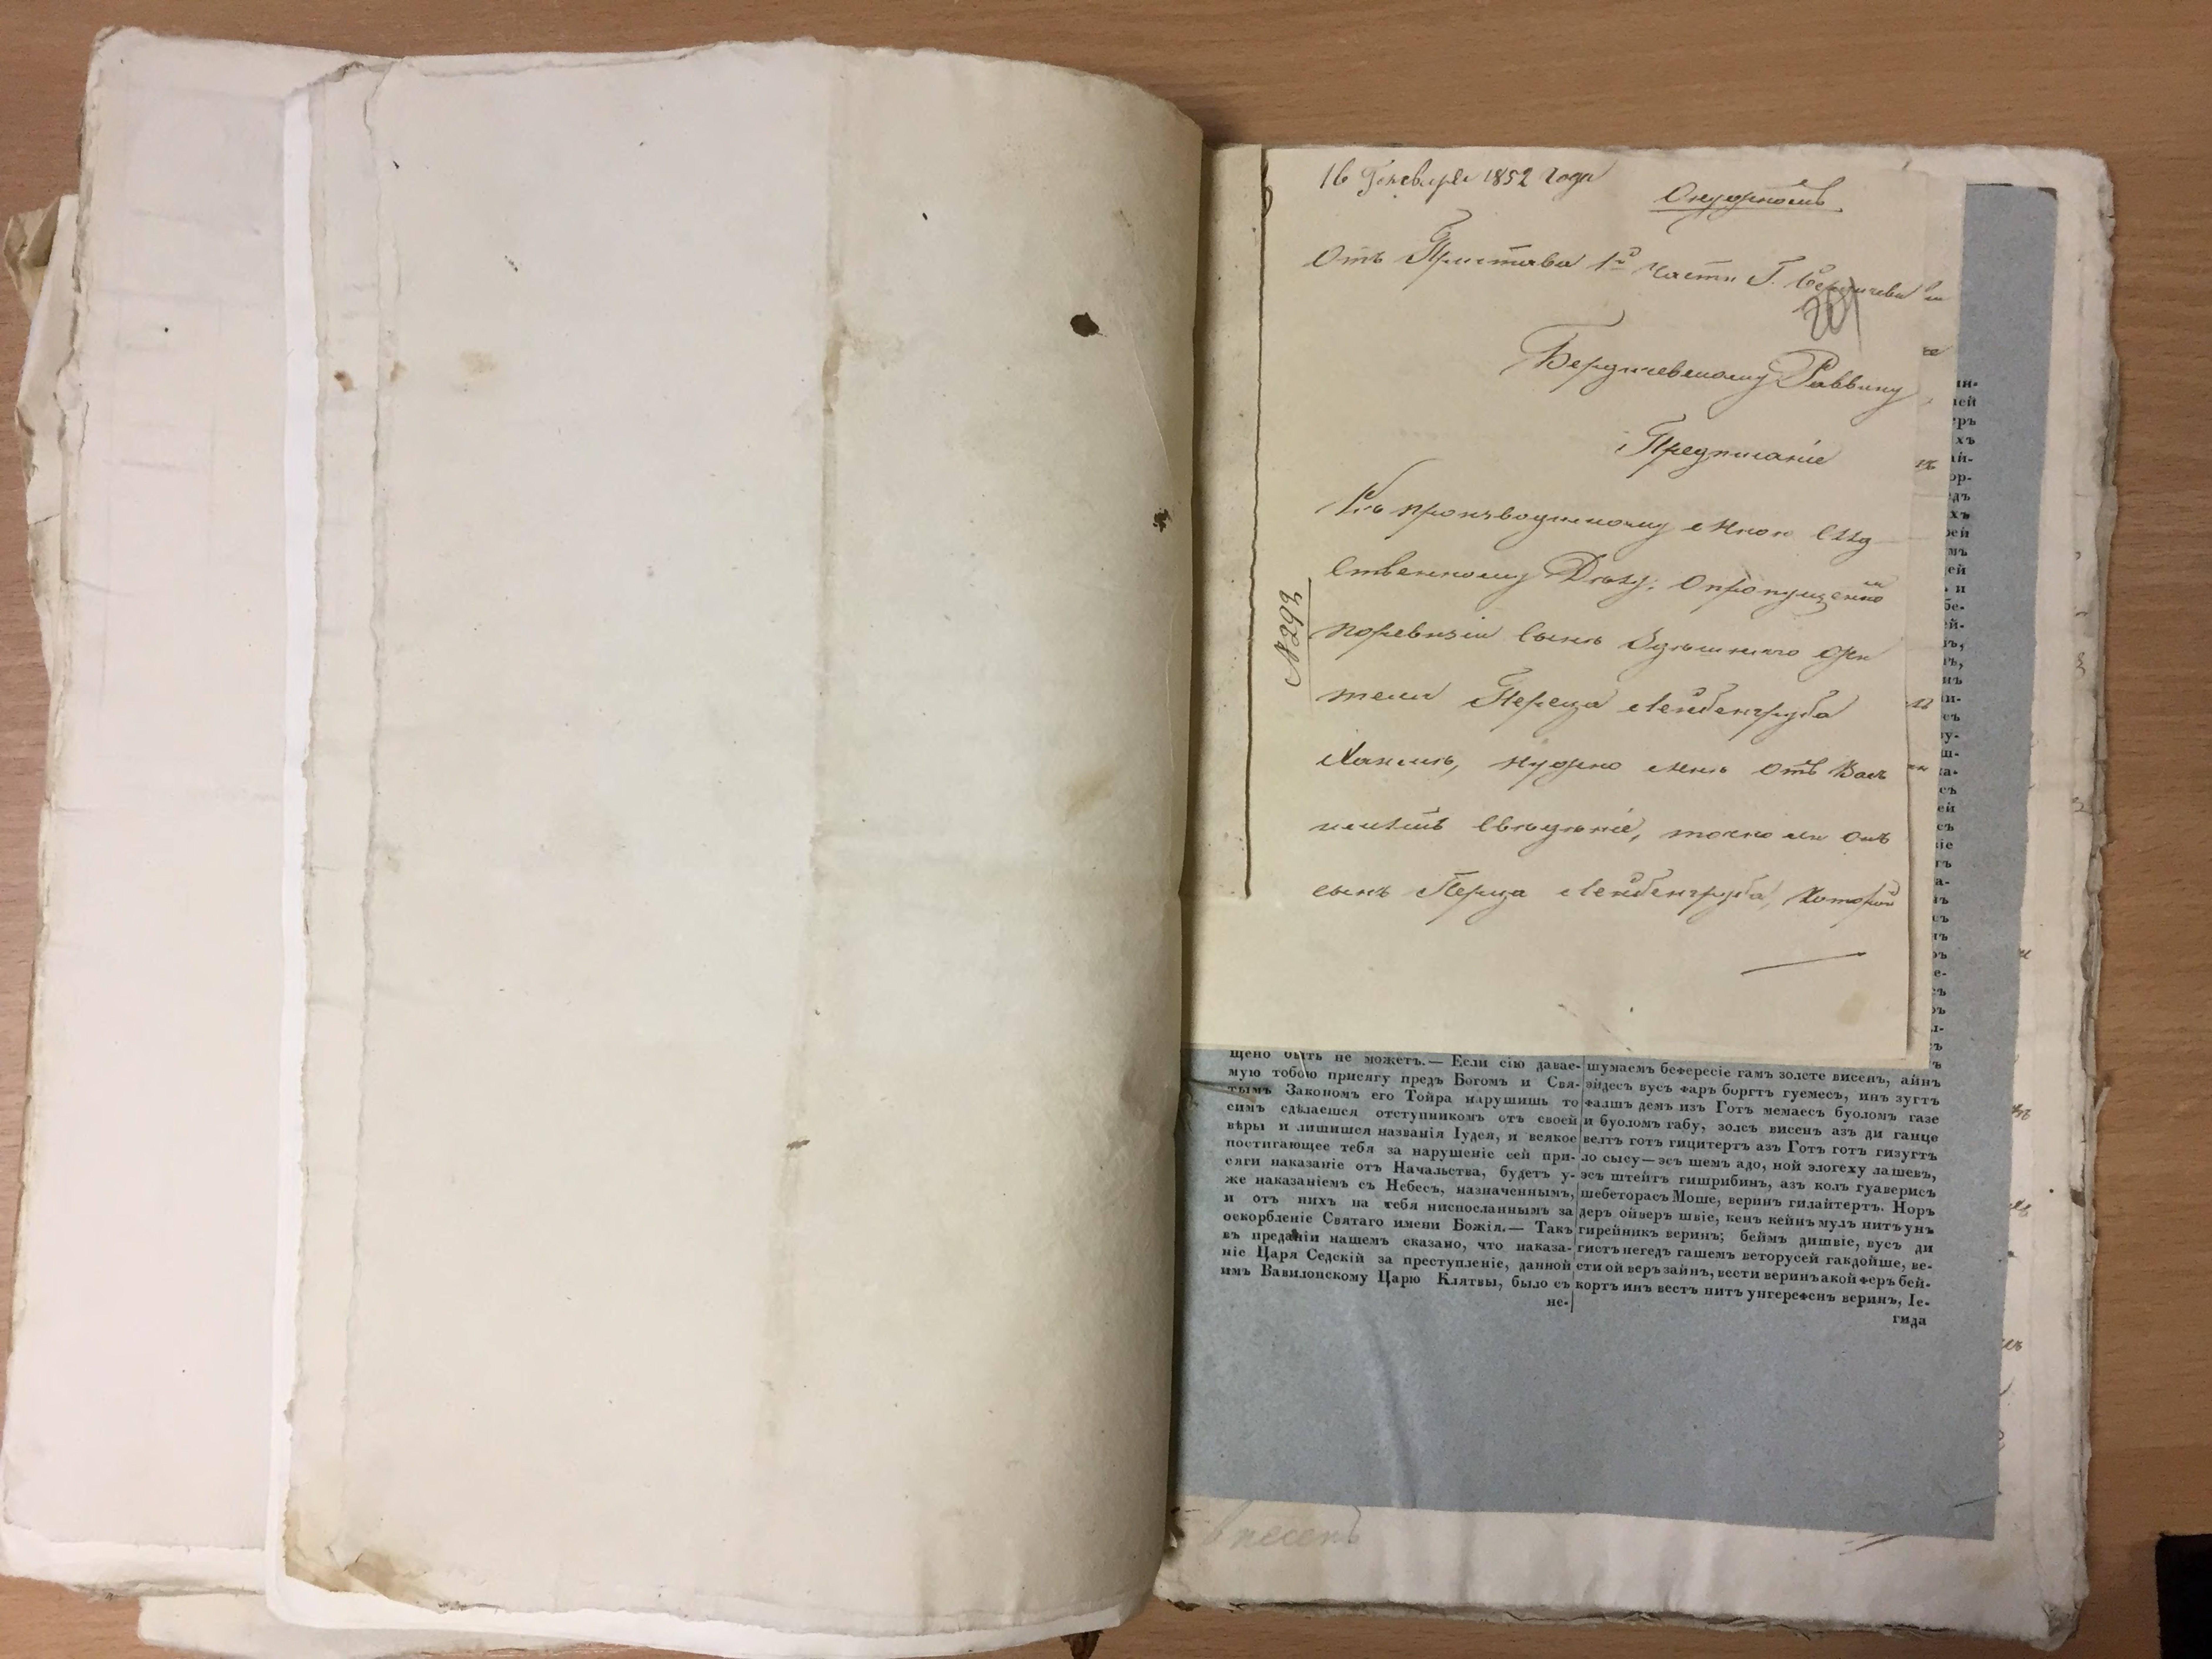 16 Генваря 1852 года
О нуждномъ
Отъ Пристава 1й Части Г. Бердичева
201
Бердичевскому Раввину
Предписаніе
Къ производимому мною Слѣд
ственному Дѣлу, о пропущенномъ
по ревизіи сынѣ здѣшняго жи
теля Переца Лейбенгруба
нужно мнѣ отъ Васъ
имѣть свѣдѣніе, точно ли онъ
сынъ Перца Лейбенгруба, который
№ 293
щено быть не можетъ.— Если сію давае-
мую тобою присягу предъ Богомъ и Свя-
тымъ Закономъ его Тойра нарушишь то
симъ сдѣлаешся отступникомъ отъ своей
вѣры и лишишся названія Іудея, и всякое
постигающее тебя за нарушеніе сей при-
сяги наказаніе отъ Начальства, будетъ у-
же наказаніемъ съ Небесъ, назначеннымъ,
и отъ нихъ на тебя ниспосланнымъ за
оскорбленіе Святаго имени Божія.— Такъ
въ преданіи нашемъ сказано, что наказа-
ніе Царя Седскій за преступленіе, данной
имъ Вавилонскому Царю Клятвы, было съ
не-
шумаемъ беѳересіе гамъ золсте висенъ, айнъ
эйдесъ вусъ ѳаръ боргтъ гуемесъ, инъ зугтъ
ѳалшъ демъ изъ Готъ мемаесъ буоломъ газе
и буоломъ габу, золсъ висенъ азъ ди ганце
велтъ готъ гицитертъ азъ Готъ готъ гизугтъ
ло сысу—эсъ шемъ адо, ной элогеху лашевъ,
эсъ штейтъ гишрибинъ, азъ колъ гуаверисъ
шебеторасъ Моше, веринъ гилайтертъ. Норъ
деръ ойверъ швіе, кенъ кейнъ мулъ нитъ унъ
гирейникъ веринъ; беймъ дишвіе, вусъ ди
гистъ негедъ гашемъ веторусей гакдойше, ве-
сти ой веръ зайнъ, вести веринъ акой ѳеръ бей-
кортъ инъ вестъ нитъ унгереѳенъ веринъ, Іе-
гида
внесенъ